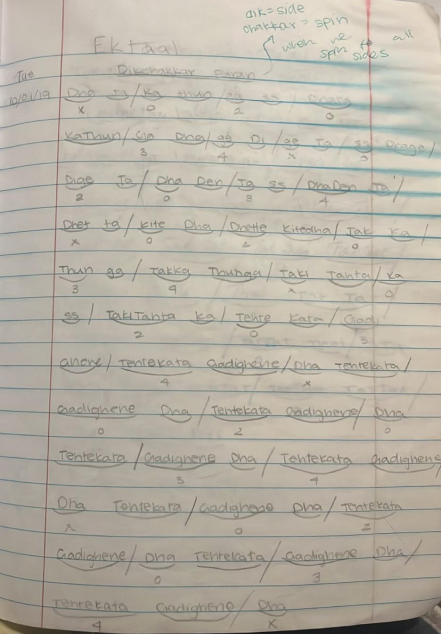 dik = side
chakkar = spin
when we spin to all sides
Ektaal
Tue
10/01/19
Dikchakkar Paran
Dha ta / Ka thun / gg ss /
x 0 2 0
KaThun / Gin Dha / gg Di / gg Ta / ss Drage /
3 4 x 0
Dige Ta / Dha Den / Ta ss / DhaDen Ta /
2 0 3 4
Dhet ta / Kite Dha / Dhette Kitedha / Tak Ka /
x 0 2 0
Thun gg / Takka Thunga / Taki Tanta / Ka
3 4 x 0
ss / TakiTanta Ka / Tehre Kara / Gadi
2 0 3
anene / Tentekata Gadighene / Dha Tentekata /
4 x
Gadighene Dha / Tentekata Gadighene / Dha
0 2 0
Tentekata / Gadighene Dha / Tentekata Gadighene
3 4
Dha Tentekata / Gadighene Dha / Tentekata
x 0 2
Gadighene / Dha Tentekata / Gadighene Dha /
0 3
Tentekata Gadighene / Dha
4 x